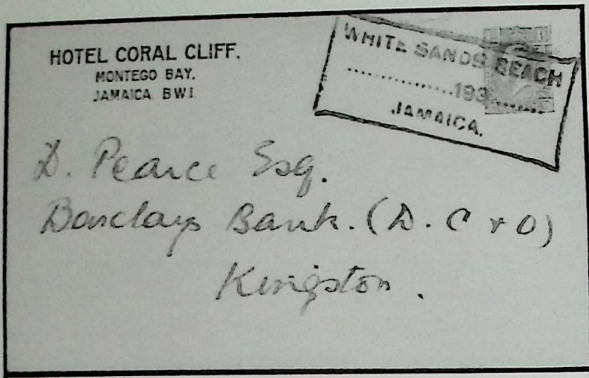 HOTEL CORAL CLIFF.
MONTEGO BAY,
JAMAICA. B W I.
WHITE SANDS BEACH
...............193.........
JAMAICA.
D. Pearce Esq.
Barclays Bank. (D. C & O)
Kingston.